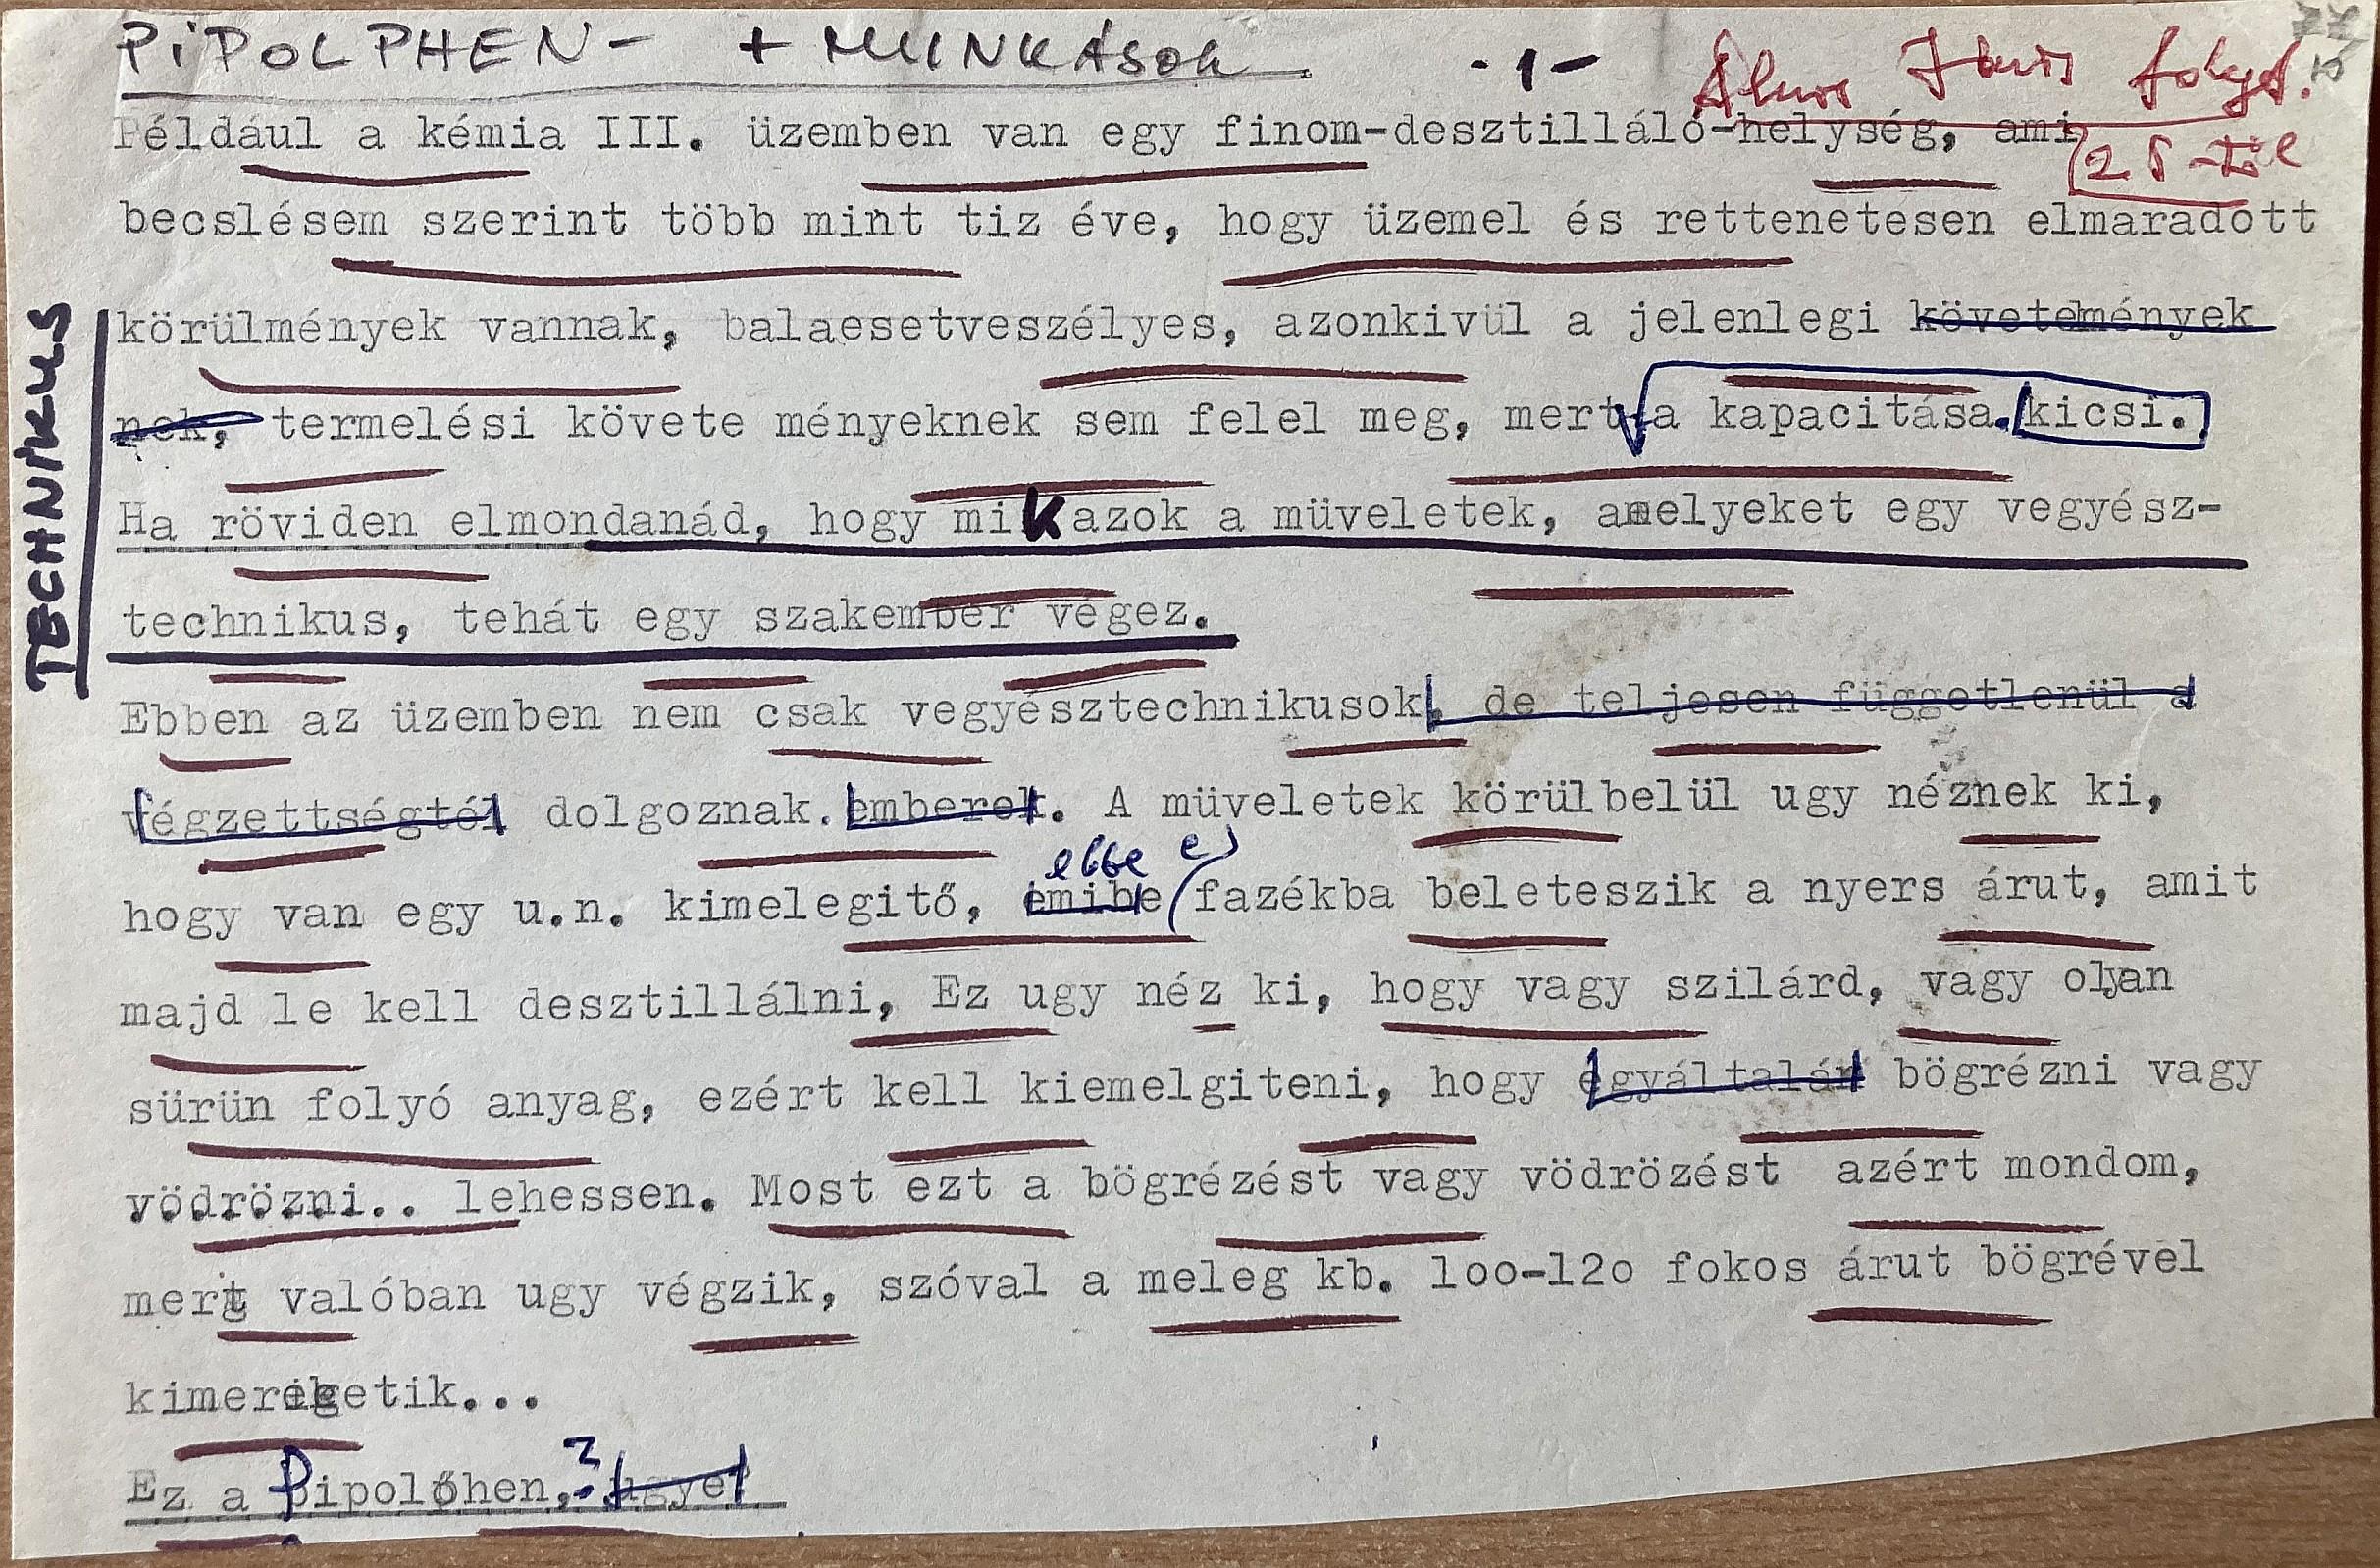 PIPOLPHEN- + MUNKÁSOK -1-
Például a kémia III. üzemben van egy finom-desztilláló-helység, ami
25-től
becslésem szerint több mint tiz éve, hogy üzemel és rettenetesen elmaradott
körülmények vannak, balaesetveszélyes, azonkivül a jelenlegi követemények
nek, termelési követe ményeknek sem felel meg, mert a kapacitása. kicsi.
TECHNIKUS
Ha röviden elmondanád, hogy mik azok a müveletek, amelyeket egy vegyész-
technikus, tehát egy szakember végez.
Ebben az üzemben nem csak vegyésztechnikusok, de teljesen függetlenül a
végzettségtől dolgoznak. emberek. A müveletek körülbelül ugy néznek ki,
ebbe
hogy van egy u.n. kimelegitő, amibe fazékba beleteszik a nyers árut, amit
majd le kell desztillálni, Ez ugy néz ki, hogy vagy szilárd, vagy olyan
sürün folyó anyag, ezért kell kiemelgiteni, hogy egyáltalán bögrézni vagy
vödrözni.. lehessen. Most ezt a bögrézést vagy vödrözést azért mondom,
mert valóban ugy végzik, szóval a meleg kb. loo-l2o fokos árut bögrével
kimeregetik...
Ez a Pipolphen,? ügye?